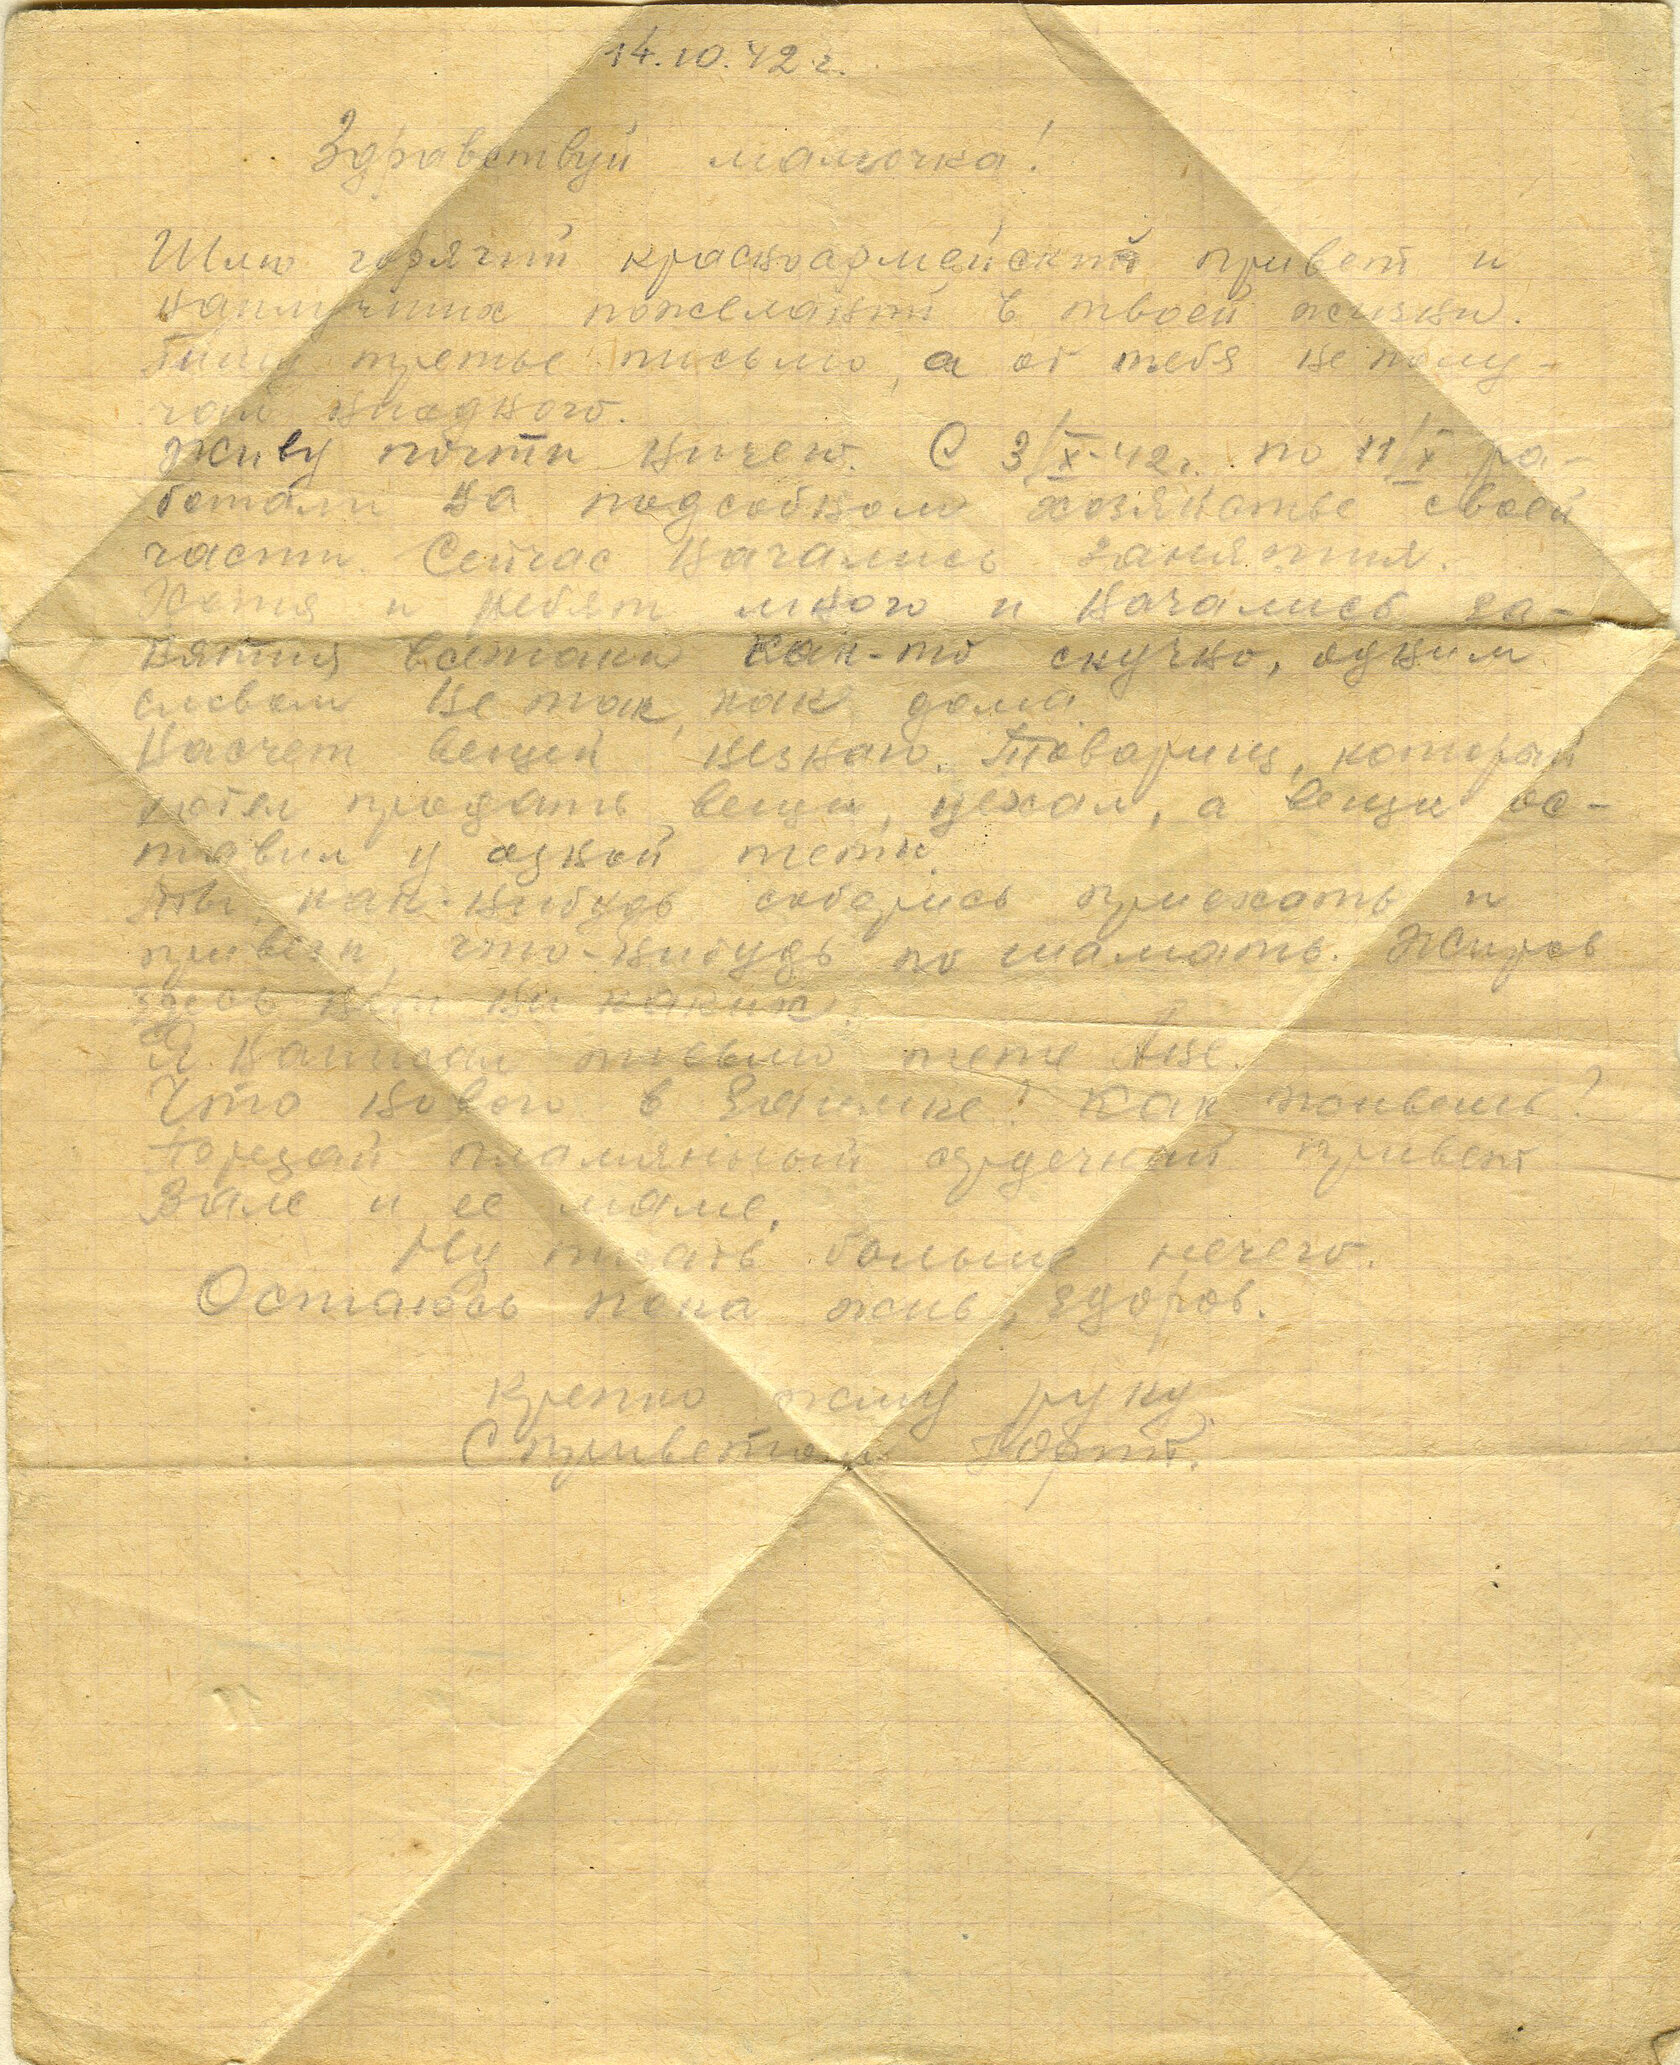 14.10.42 г.
Здравствуй мамочка!
Шлю горячий красноармейский привет и
наилучших пожеланий в твоей жизни.
Пишу третье письмо, а от тебя не полу-
чаю ниодного.
Живу почти ничего. С 3/X-42г. по 11/X ра-
ботали на подсобном хозяйстве своей
части. Сейчас начались занятия.
Хотя и ребят много и начались за-
нятия всетаки как-то скучно, одним
словом не так, как дома.
Насчет вещей незнаю. Товарищ, который
хотел продать вещи, уехал, а вещи ос-
тавил у одной тети.
Ты, как-нибудь соберись приехать и
привези, что-нибудь по шамать. Жиров
здесь нет ни каких.
Я написал письмо тете Ане.
Что нового в Заимке? Как живешь?
Передай пламянный сердечный привет
Вале и ее маме.
Ну писать больше нечего.
Остаюсь пока жив, здоров.
Крепко жму руку.
С приветом